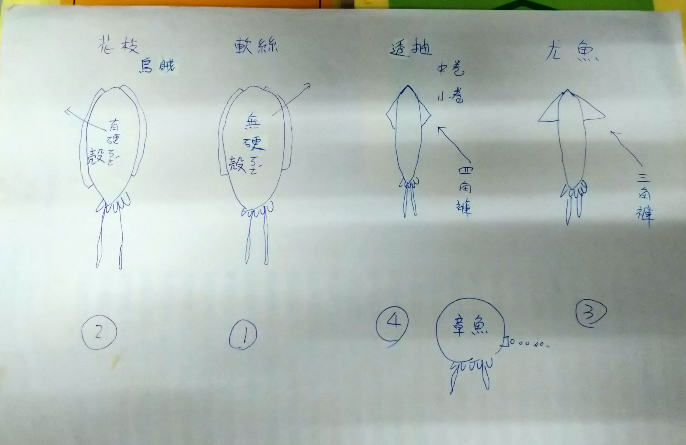 花枝
烏賊
軟絲
透抽
中卷
小卷
尤魚
有硬殼
ㄎㄜˊ
無硬殼
ㄎㄜˊ
四角褲
三角褲
②
①
④
章魚
③